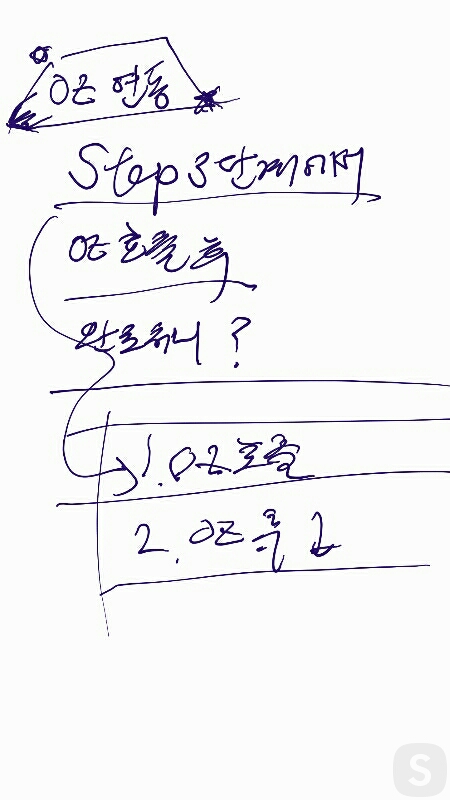 OZ 연동
Step 3 단계에서
OZ 호출 후
완료하니 ?
1. OZ 호출
2. OZ
S